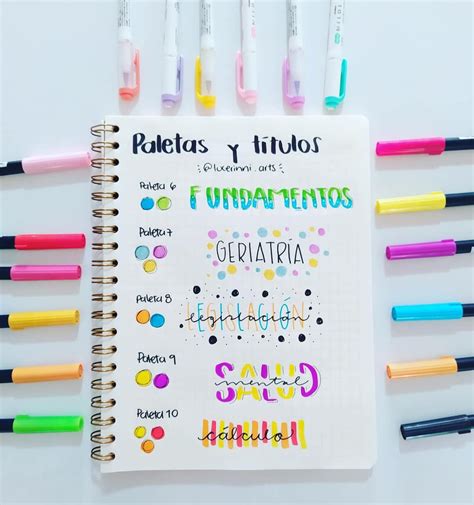 Paletas y títulos
@lucerinni.arts
Paleta 6
FUNDAMENTOS
Paleta 7
GERIATRÍA
Paleta 8
LEGISLACIÓN
legislación
Paleta 9
SALUD
mental
Paleta 10
cálculo